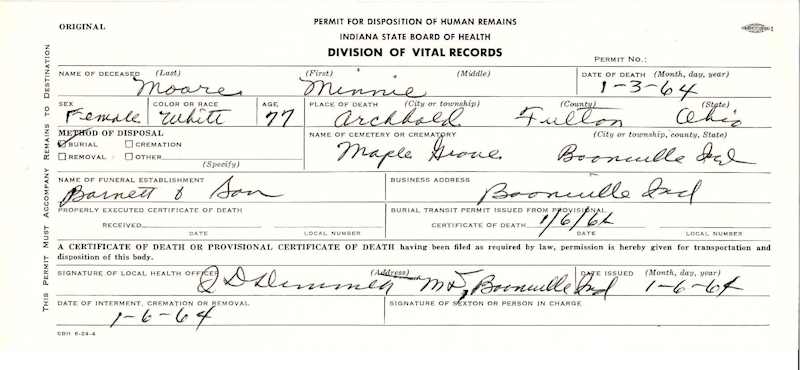 ORIGINAL
PERMIT FOR DISPOSITION OF HUMAN REMAINS
INDIANA STATE BOARD OF HEALTH
DIVISION OF VITAL RECORDS
PERMIT NO.:
THIS PERMIT MUST ACCOMPANY REMAINS TO DESTINATION
NAME OF DECEASED (Last) (First) (Middle) DATE OF DEATH (Month, day, year)
Moore Minnie 1-3-64
SEX COLOR OR RACE AGE PLACE OF DEATH (City or township) (County) (State)
Female White 77 Archbold Fulton Ohio
METHOD OF DISPOSAL NAME OF CEMETERY OR CREMATORY (City or township, county, State)
BURIAL CREMATION
REMOVAL OTHER Maple Grove Boonville Ind
(Specify)
NAME OF FUNERAL ESTABLISHMENT BUSINESS ADDRESS
Barnett & Son Boonville Ind
PROPERLY EXECUTED CERTIFICATE OF DEATH BURIAL TRANSIT PERMIT ISSUED FROM PROVISIONAL
RECEIVED CERTIFICATE OF DEATH: 1/6/64
DATE LOCAL NUMBER DATE LOCAL NUMBER
A CERTIFICATE OF DEATH OR PROVISIONAL CERTIFICATE OF DEATH having been filed as required by law, permission is hereby given for transportation and
disposition of this body.
SIGNATURE OF LOCAL HEALTH OFFICER (Address) DATE ISSUED (Month, day, year)
MD, Boonville Ind 1-6-64
DATE OF INTERMENT, CREMATION OR REMOVAL SIGNATURE OF SEXTON OR PERSON IN CHARGE
1-6-64
SBH 6-24-4